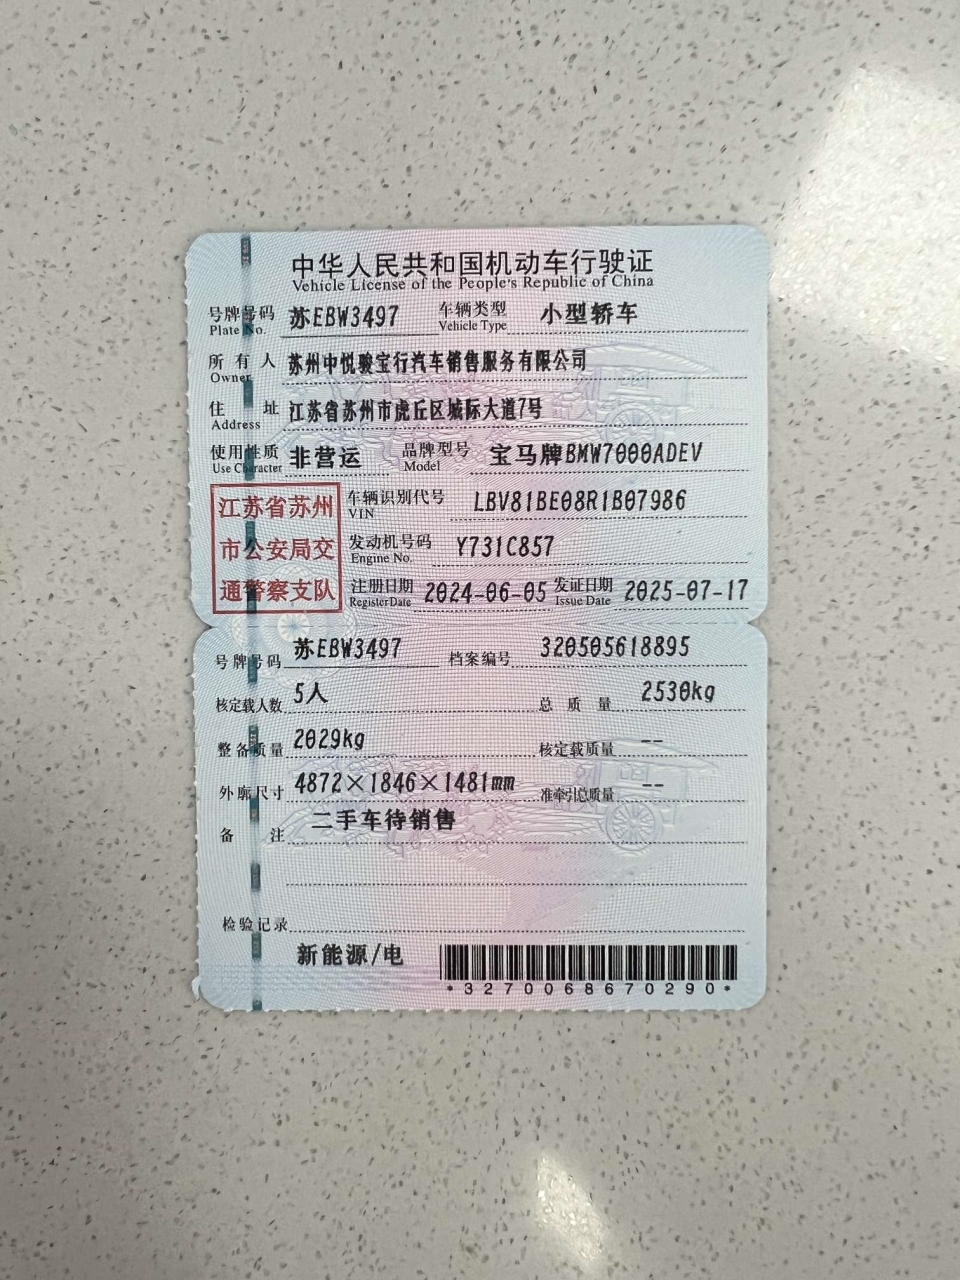 中华人民共和国机动车行驶证
Vehicle License of the People's Republic of China
号牌号码 苏EBW3497 车辆类型 小型轿车
Plate No. Vehicle Type
所有人 苏州中悦骏宝行汽车销售服务有限公司
Owner
住址 江苏省苏州市虎丘区城际大道7号
Address
使用性质 非营运 品牌型号 宝马牌BMW7000ADEV
Use Character Model
江苏省苏州
市公安局交
通警察支队
车辆识别代号 LBV81BE08R1B07986
VIN
发动机号码 Y731C857
Engine No.
注册日期 2024-06-05 发证日期 2025-07-17
Register Date Issue Date
号牌号码 苏EBW3497 档案编号 320505618895
核定载人数 5人 总质量 2530kg
整备质量 2029kg 核定载质量 --
外廓尺寸 4872×1846×1481mm 准牵引总质量 --
备注 二手车待销售
检验记录
新能源/电
*3270068670290*